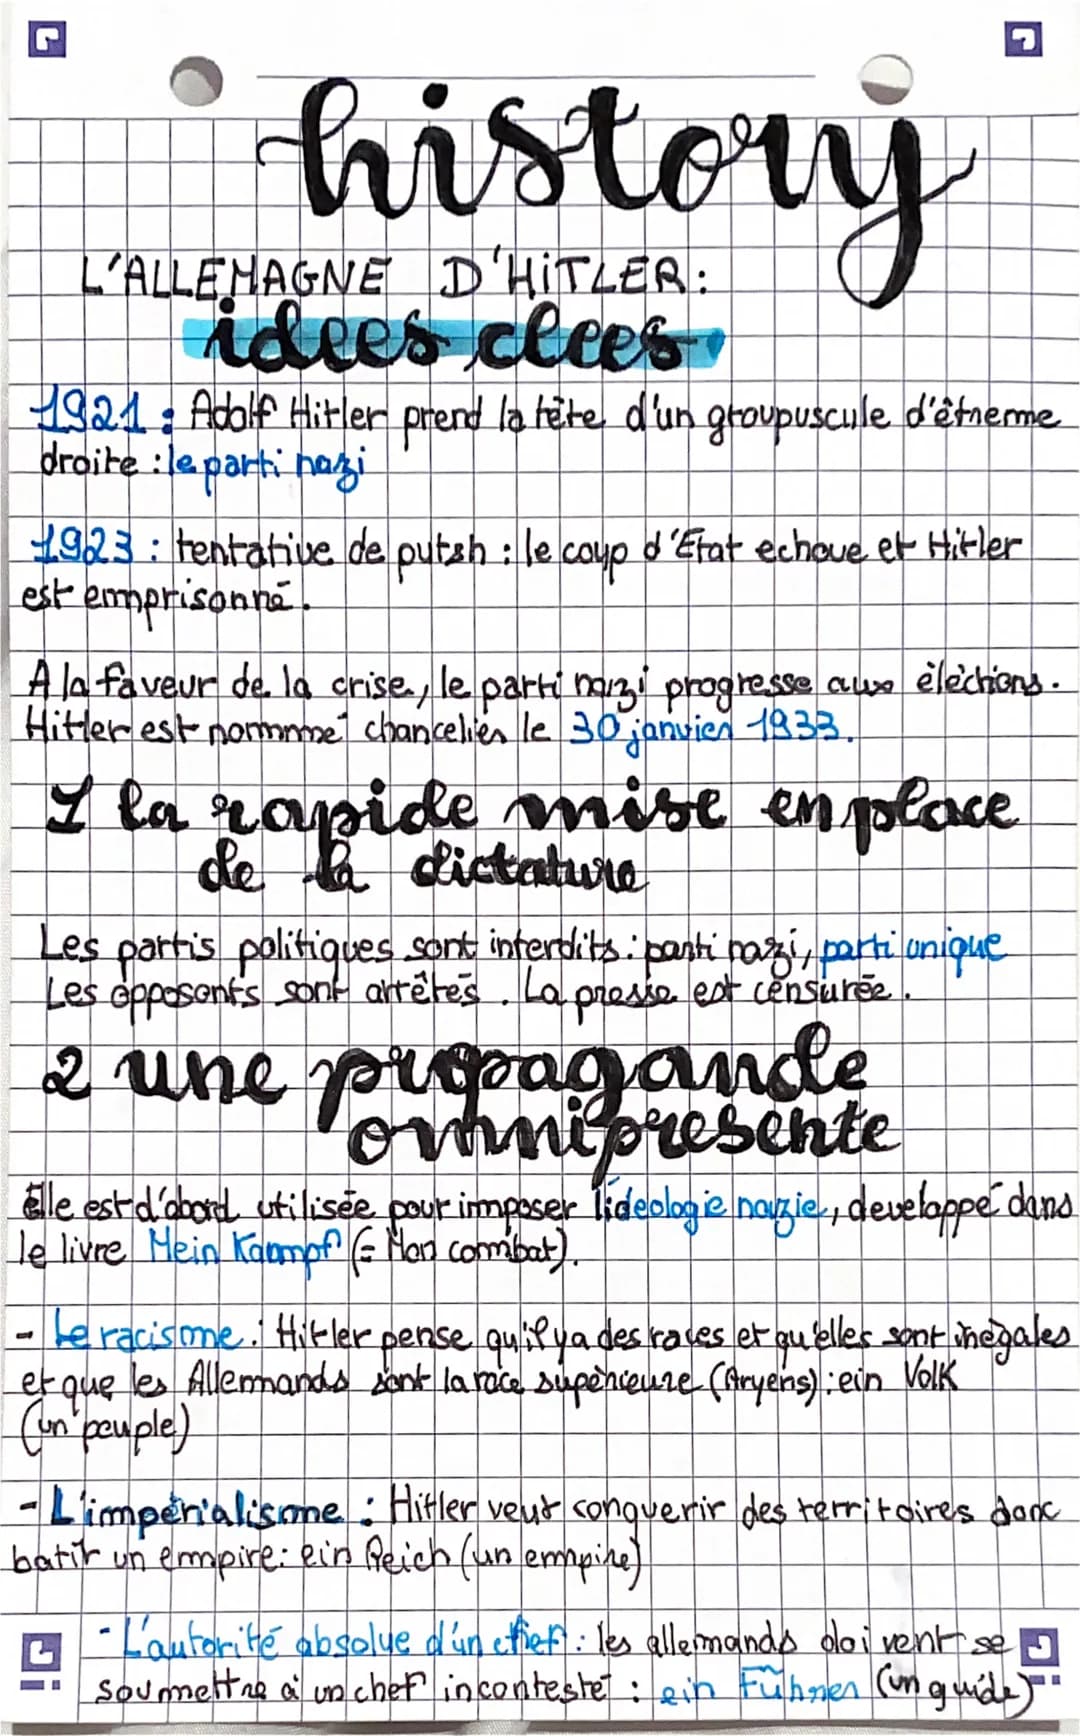 history
L'ALLEMAGNE D'HiTLER:
idees clees
1921 : Adolf Hitler prend la tête d'un groupuscule d'êtreme
droite : le parti nazi
1923 : tentative de putsh : le coup d'Etat echoue et Hitler
est emprisonné.
A la faveur de la crise, le parti nazi progresse aux élèctions.
Hitler est nommmé chancelier le 30 janvier 1933.
1 la rapide mise en place
de la dictature
Les partis politiques sont interdits : parti nazi, parti unique
Les opposents sont arrêtés. La presse est censurée.
2 une propagande
omnipresente
Elle est d'abord utilisée pour imposer l'ideologie nazie, developpé dans
le livre Mein Kaampf (= Mon combat).
- Le racisme : Hitler pense qu'il y a des races et qu'elles sont inégales
et que les Allemands sont la race supérieure (Aryens) : ein Volk
(un peuple)
- L'impérialisme : Hitler veut conquerir des territoires donc
batir un empire : ein Reich (un empire)
- L'autorité absolue d'un chef : les allemands doivent se
soumettre à un chef incontesté : ein Führer (un guide)